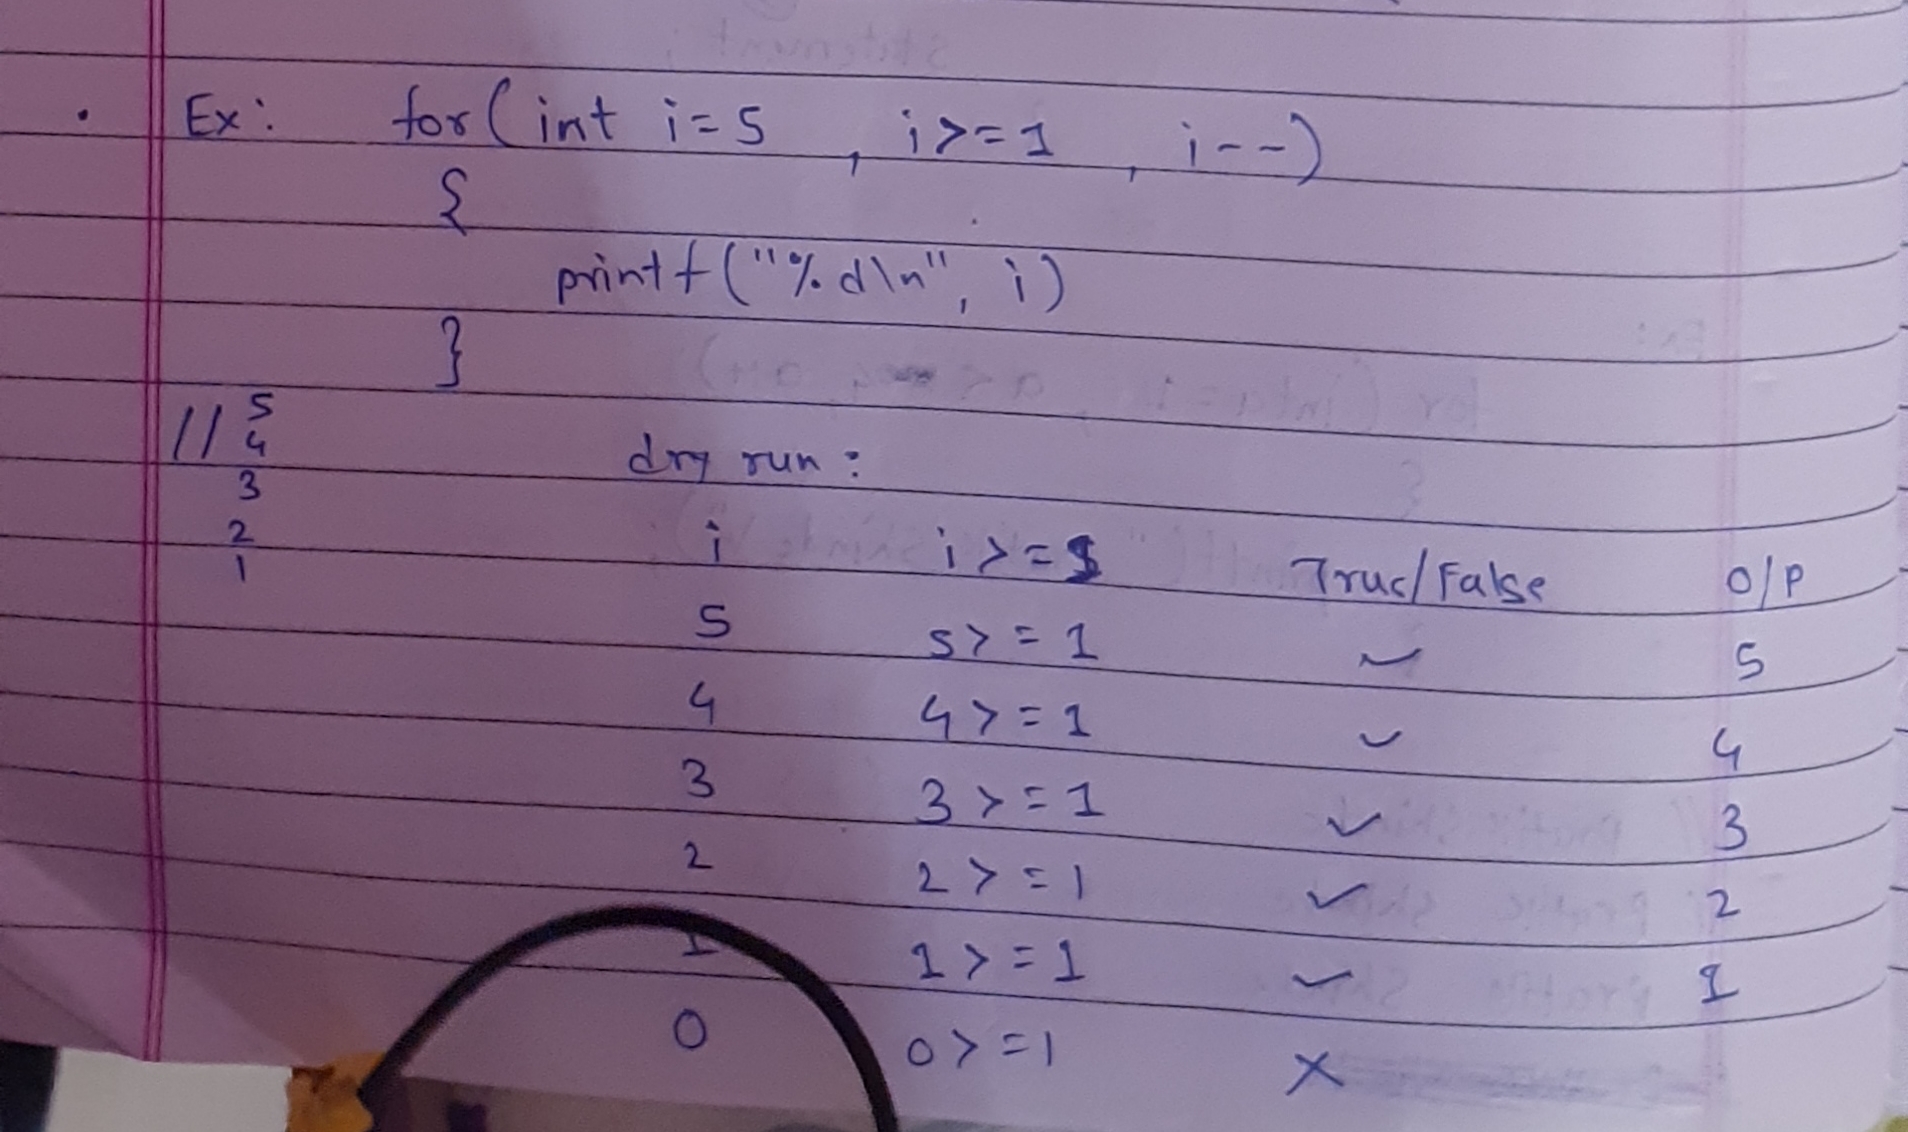 Ex: for(int i=5 , i>=1 , i--)
{
printf("%d\n", i)
}
// 5
4
3
2
1
dry run:
i i>=1 True/False O/P
5 5>=1 ✓ 5
4 4>=1 ✓ 4
3 3>=1 ✓ 3
2 2>=1 ✓ 2
1 1>=1 ✓ 1
0 0>=1 ×